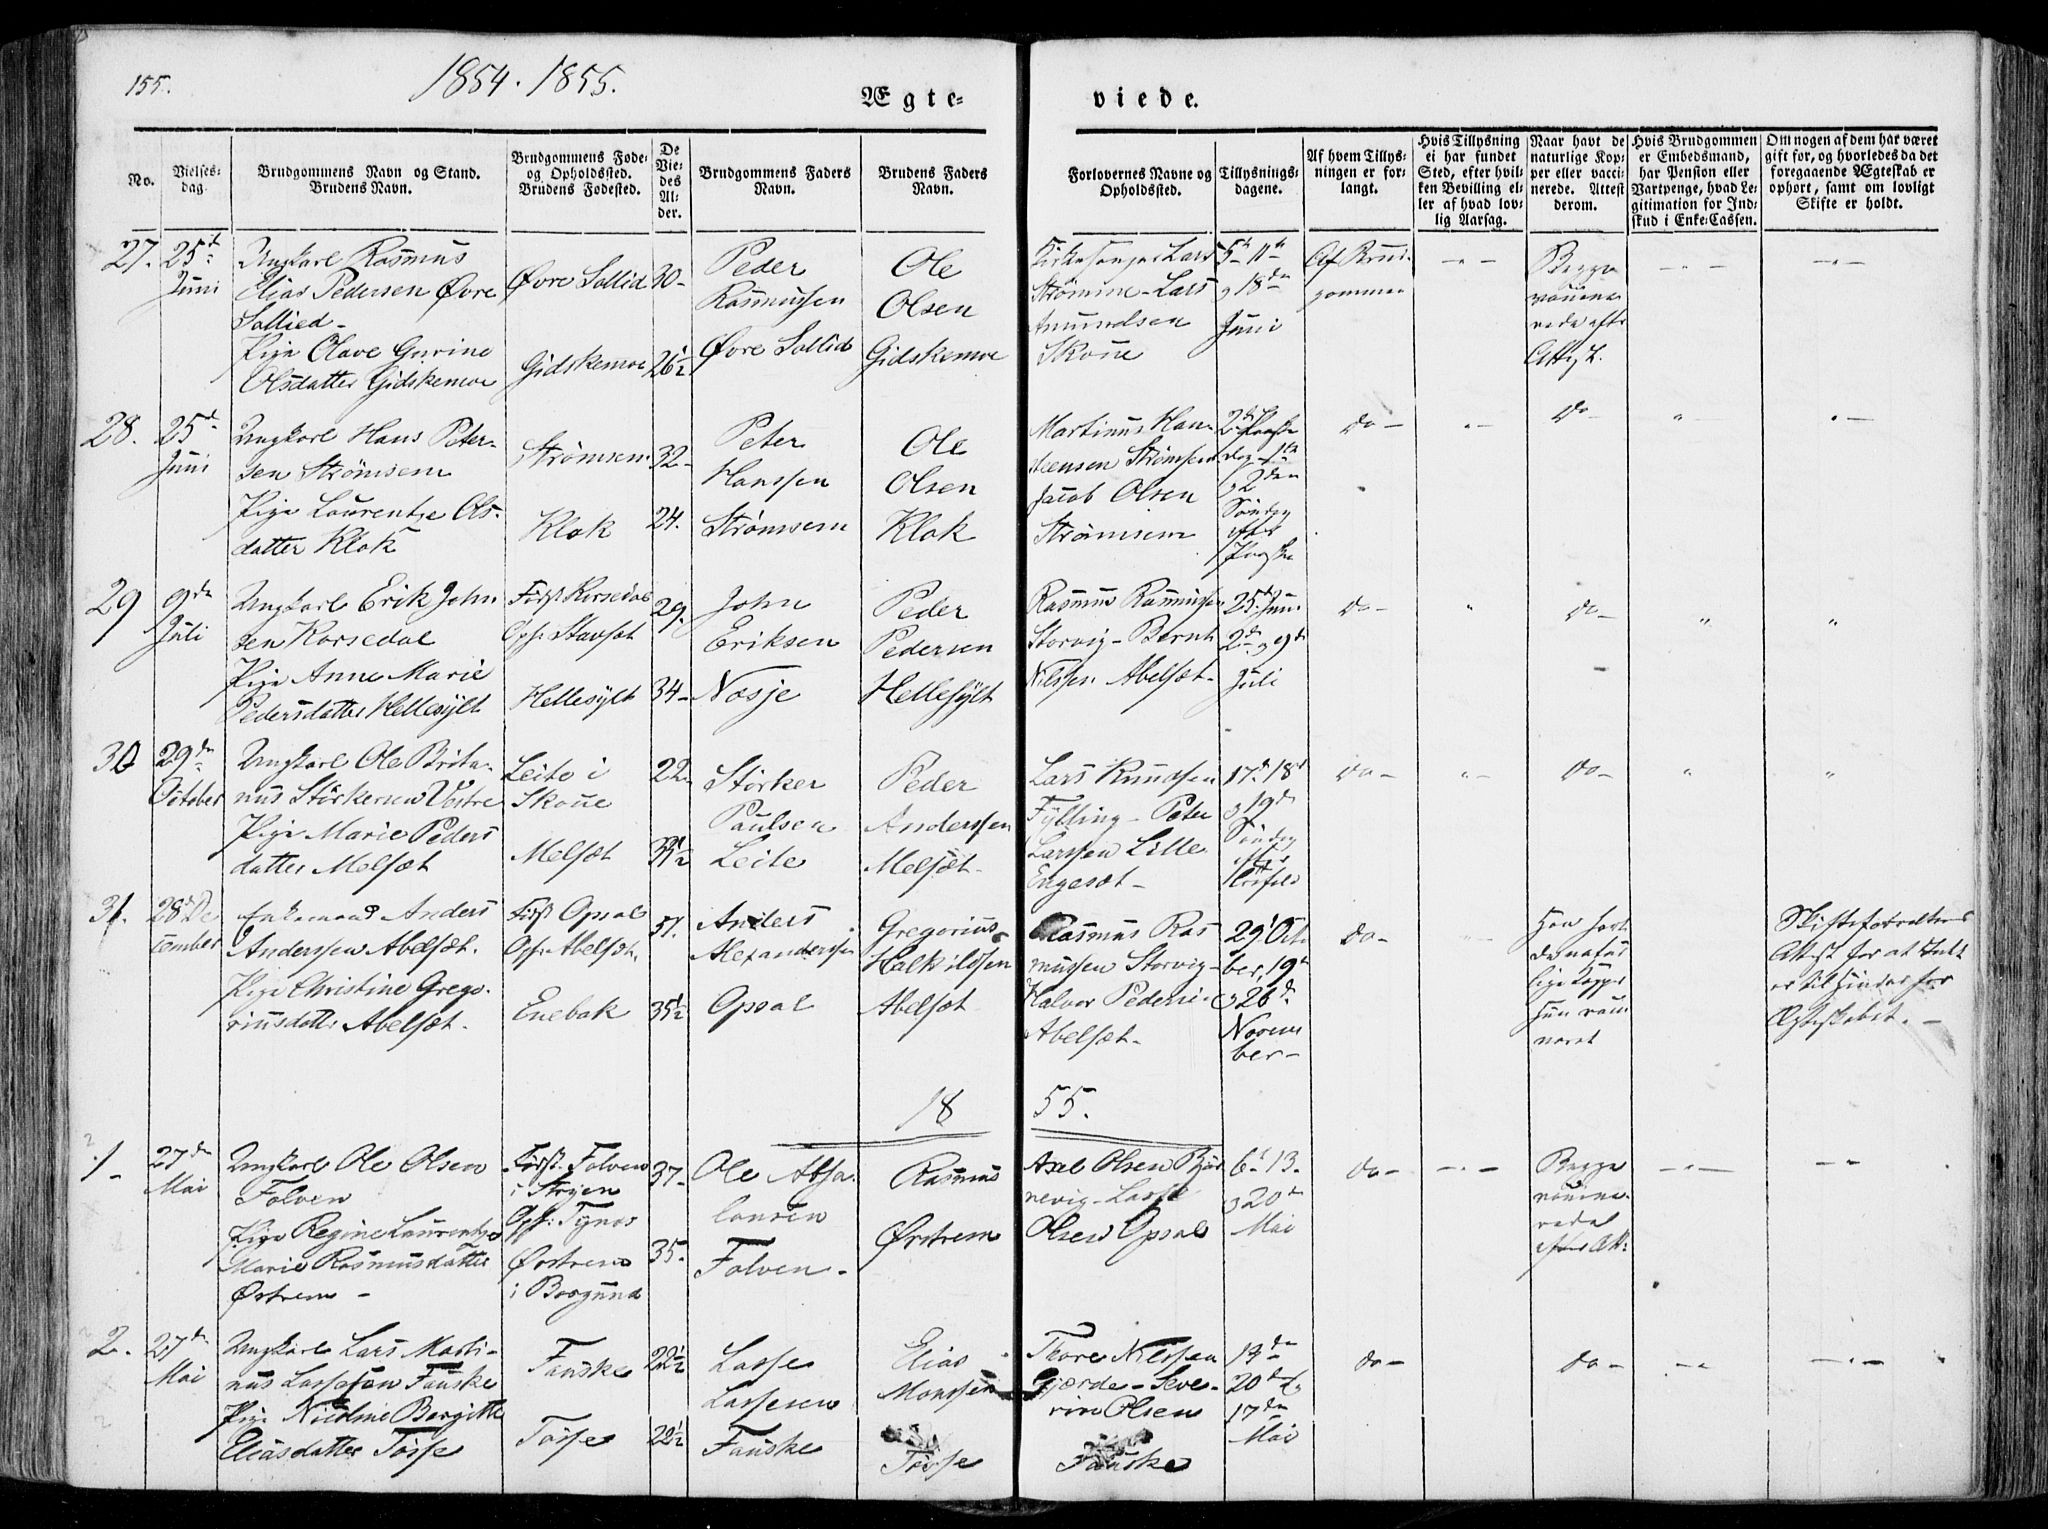 155.
1854. 1855.
Ægte-
viede.
No.
Vielses-
dag.
Brudgommens Navn og Stand.
Brudens Navn.
Brudgommens Føde-
og Opholdssted.
Brudens Fødested.
De
Vie-
des
Al-
der.
Brudgommens Faders
Navn.
Brudens Faders
Navn.
Forlovernes Navne og
Opholdssted.
Tillysnings-
dagene.
Af hvem Tillys-
ningen er for-
langt.
Hvis Tillysning
ei har fundet
Sted, efter hvil-
ken Bevilling el-
ler af hvad lov-
lig Aarsag.
Naar havt de
naturlige Kop-
per eller vacci-
nerede. Attest
derom.
Hvis Brudgommen
er Embedsmand,
har Pension eller
Vartpenge, hvad Le-
gitimation for Ind-
skud i Enke-Cassen.
Om nogen af dem har været
gift for, og hvorledes da det
foregaaende Ægteskab er
ophørt, samt om lovligt
Skifte er holdt.
27.
25d
Juni
Ungkarl Rasmus
Elias Pedersen Øvre
Sollied-
Pige Olave Gurine
Olsdatter Gidskemoe
Øvre Sollid
Gidskemoe
30-
26½
Peder
Rasmussen
Øvre Sollid
Ole
Olsen
Gidskemoe
Kirkesanger Lars
Strømme- Lars
Amundsen
Skoue
5te 11te
og 18de
Juni
Af Brud-
gommen
Begge
vaccine-
rede efter
Att.
28.
25d
Juni
Ungkarl Hans Peter-
sen Strømsem
Pige Laurentze Ols-
datter Klok
Strømsem
Klok
32-
24.
Peter
Hanssen
Strømsem
Ole
Olsen
Klok
Martinus Han-
Strømsem
Jacob Olsen
Strømsem
2den Paaske
dag 1ste
og 2den
Søndag
efter
Paaske
Do-
Do-
29
9de
Juli
Ungkarl Erik John
sen Korsedal
Pige Anne Marie
Pedersdatter Hellesylt
Født Korsedal
Oph: Stavsæt
Hellesylt
29.
34-
John
Eriksen
Nosje
Peder
Pedersen
Hellesylt
Rasmus Rasmussen
Storvig- Bernt
Nilssen Abelsæt-
25de Juni
2de og 9de
Juli
Do-
Do-
30
29de
October
Ungkarl Ole Brita-
nus Størkersen Vestre
Pige Marie Peders
datter Melsæt
Leite i
Skoue
Melsæt
22-
Størker
Paulsen
Leite
Peder
Anderssen
Melsæt-
Lars Knudsen
Fylling- Peter
Larssen Lille
Engesæt-
17de 18de
og 19de
Søndag
efter
Do-
Do-
31.
28de De
cember
Enkemand Anders
Anderssen Abelsæt.
Pige Christine Grego-
riusdatter Abelsæt.
Født Opsal
Oph: Abelsæt.
Enebak
51.
35½
Anders
Alexanderssen
Opsal
Gregorius
Halkildsen
Abelsæt
Rasmus Ras
mussen Storvig-
Halvor Pederssen
Abelsæt-
29d Octo
ber, 19de
og 26de
Novem
ber-
Do-
Han havt
de natur
lige Kopper
Hun vacci
neret
Skifteforvalterens
Attest for at Intet
er til Hinder for
Ægteskabet.-
18
55.
1-
27de
Mai
Ungkarl Ole Olsen
Folven
Pige Regine Laurentze
Marie Rasmusdatter
Ørstrem-
Født. Folven
i Stryen
Oph: Tynes
Ørstrem
i Borgund
37-
35-
Ole Absa-
lonsen
Folven-
Rasmus
Ørstrem
Axel Olsen Bjør
nevig- Lasse
Olsen Opsal
6te 13-
og 20de
Mai
Do-
Begge
vaccine-
rede
efter Att:
2.
27de
Mai
Ungkarl Lars Marti-
nus Lassesen Fauske
Pige Nicoline Bergitte
Eliasdatter Tosse
Fauske
Tosse
22½
22½
Lasse
Lassesen
Fauske
Elias
Monssen
Tosse
Thore Nilssen
Gjærde- Seve-
rin Olsen
Fauske
13de
20de og
17de
Mai
Do-
Do-